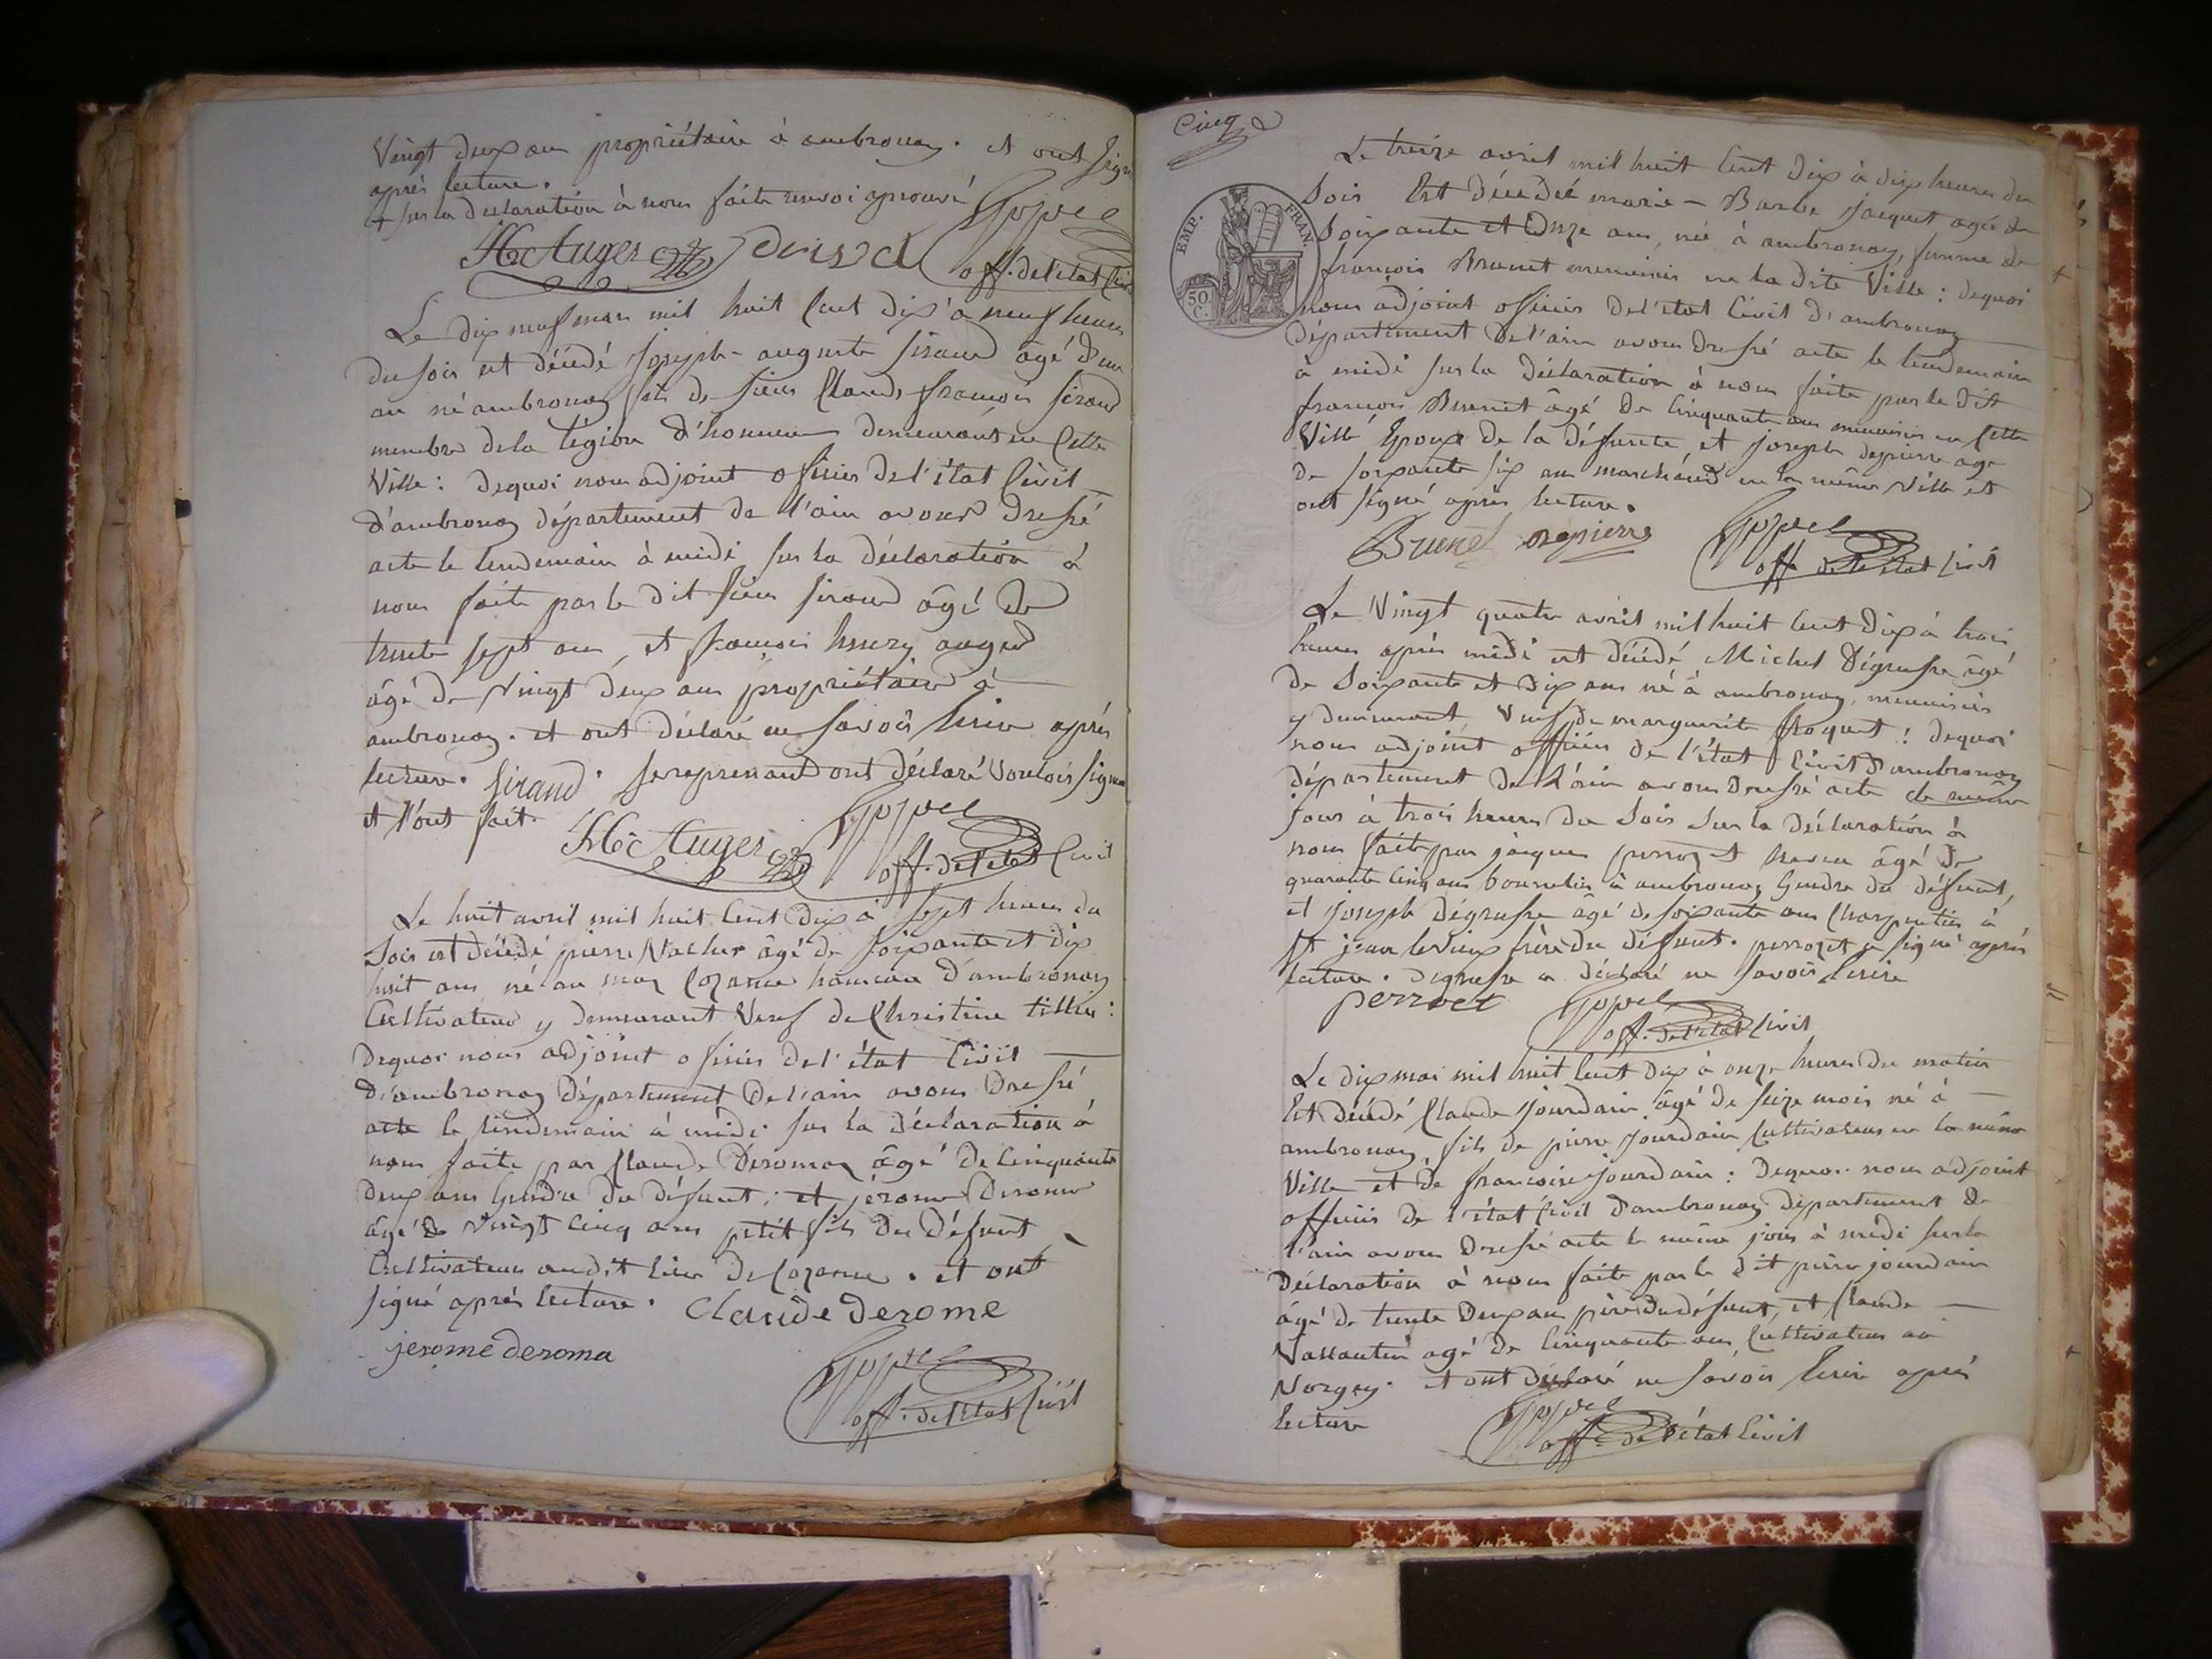 Vingt deux ans propriétaire à ambronay. et ont signé
après lecture.
+ sur la declaration à nous faite renvoi aprouvé
H. Auger
off. de l'état civil
Le dix neuf mars mil huit cent dix à neuf heures
du soir est décédé joseph-auguste sirand âgé d'un
an né ambronay fils de sieur claude françois sirand
membre de la légion d'honneur demeurant en cette
Ville : dequoi nous adjoint officier de l'état civil
d'ambronay département de l'ain avons dressé
acte le lendemain à midi sur la déclaration à
nous faite par le dit sieur sirand âgé de
trente sept ans, et françois henry auger
âgé de vingt deux ans propriétaire à
ambronay. et ont déclaré ne savoir écrire après
lecture. Sirand. se reprenant ont déclaré vouloir signer
et l'ont fait.
H. Auger
off. de l'état civil
Le huit avril mil huit cent dix à sept heures du
soir est décédé pierre Vacher âgé de soixante et dix
huit ans né au hameau d'ambronay
Cultivateur y demeurant Veuf de Christine tillier :
Dequoi nous adjoint officier de l'état civil
d'ambronay département de l'ain avons dressé
acte le lendemain à midi sur la déclaration à
nous faite par claude Deroma âgé de cinquante
deux ans gendre du défunt, et jérome Derome
âgé de vingt cinq ans petit fils du défunt
Cultivateurs audit lieu de . et ont
signé après lecture. Claude derome
jerome deroma
off. de l'état civil
Cinq
EMP. FRAN.
50 C.
Le treize avril mil huit cent dix à dix heures du
soir Est décédée marie-Barbe jacquet agée de
soixante et onze ans, née à ambronay, femme de
françois Brunet menuisier en la dite Ville : dequoi
nous adjoint officier de l'état civil d'ambronay
département de l'ain avons dressé acte le lendemain
à midi sur la déclaration à nous faite par le dit
françois Brunet âgé de cinquante ans menuisier en cette
Ville Epoux de la défunte et joseph depierre agé
de soixante six ans marchand en la même Ville et
ont signé après lecture.
Brunet depierre
off. de l'état civil
Le Vingt quatre avril mil huit cent dix à trois
heures après midi est décédé Michel Dégrusse âgé
de soixante et dix ans né à ambronay, menuisier
y demeurant, Veuf de marguerite froquet : dequoi
nous adjoint officier de l'état civil d'ambronay
département de l'ain avons dressé acte le même
jour à trois heures du soir sur la déclaration à
nous faite par jacques perrozet âgé de
quarante cinq ans bourrelier à ambronay Gendre du défunt,
et joseph Dégrusse âgé de soixante ans Charpentier à
St jean le vieux frère du défunt. perrozet a signé après
lecture. Degrusse a déclaré ne savoir écrire
off. de l'état civil
Le dix mai mil huit cent dix à onze heures du matin
Est décédé Claude jourdain âgé de seize mois né à
ambronay, fils de pierre jourdain Cultivateur en la même
Ville et de francoise jourdain : Dequoi nous adjoint
officier de l'état civil d'ambronay département de
l'ain avons dressé acte le même jour à midi sur la
Déclaration à nous faite par le dit pierre jourdain
âgé de trente deux ans père du défunt, et claude
agé de cinquante ans Cultivateur au
. et ont déclaré ne savoir écrire après
lecture
off. de l'état civil